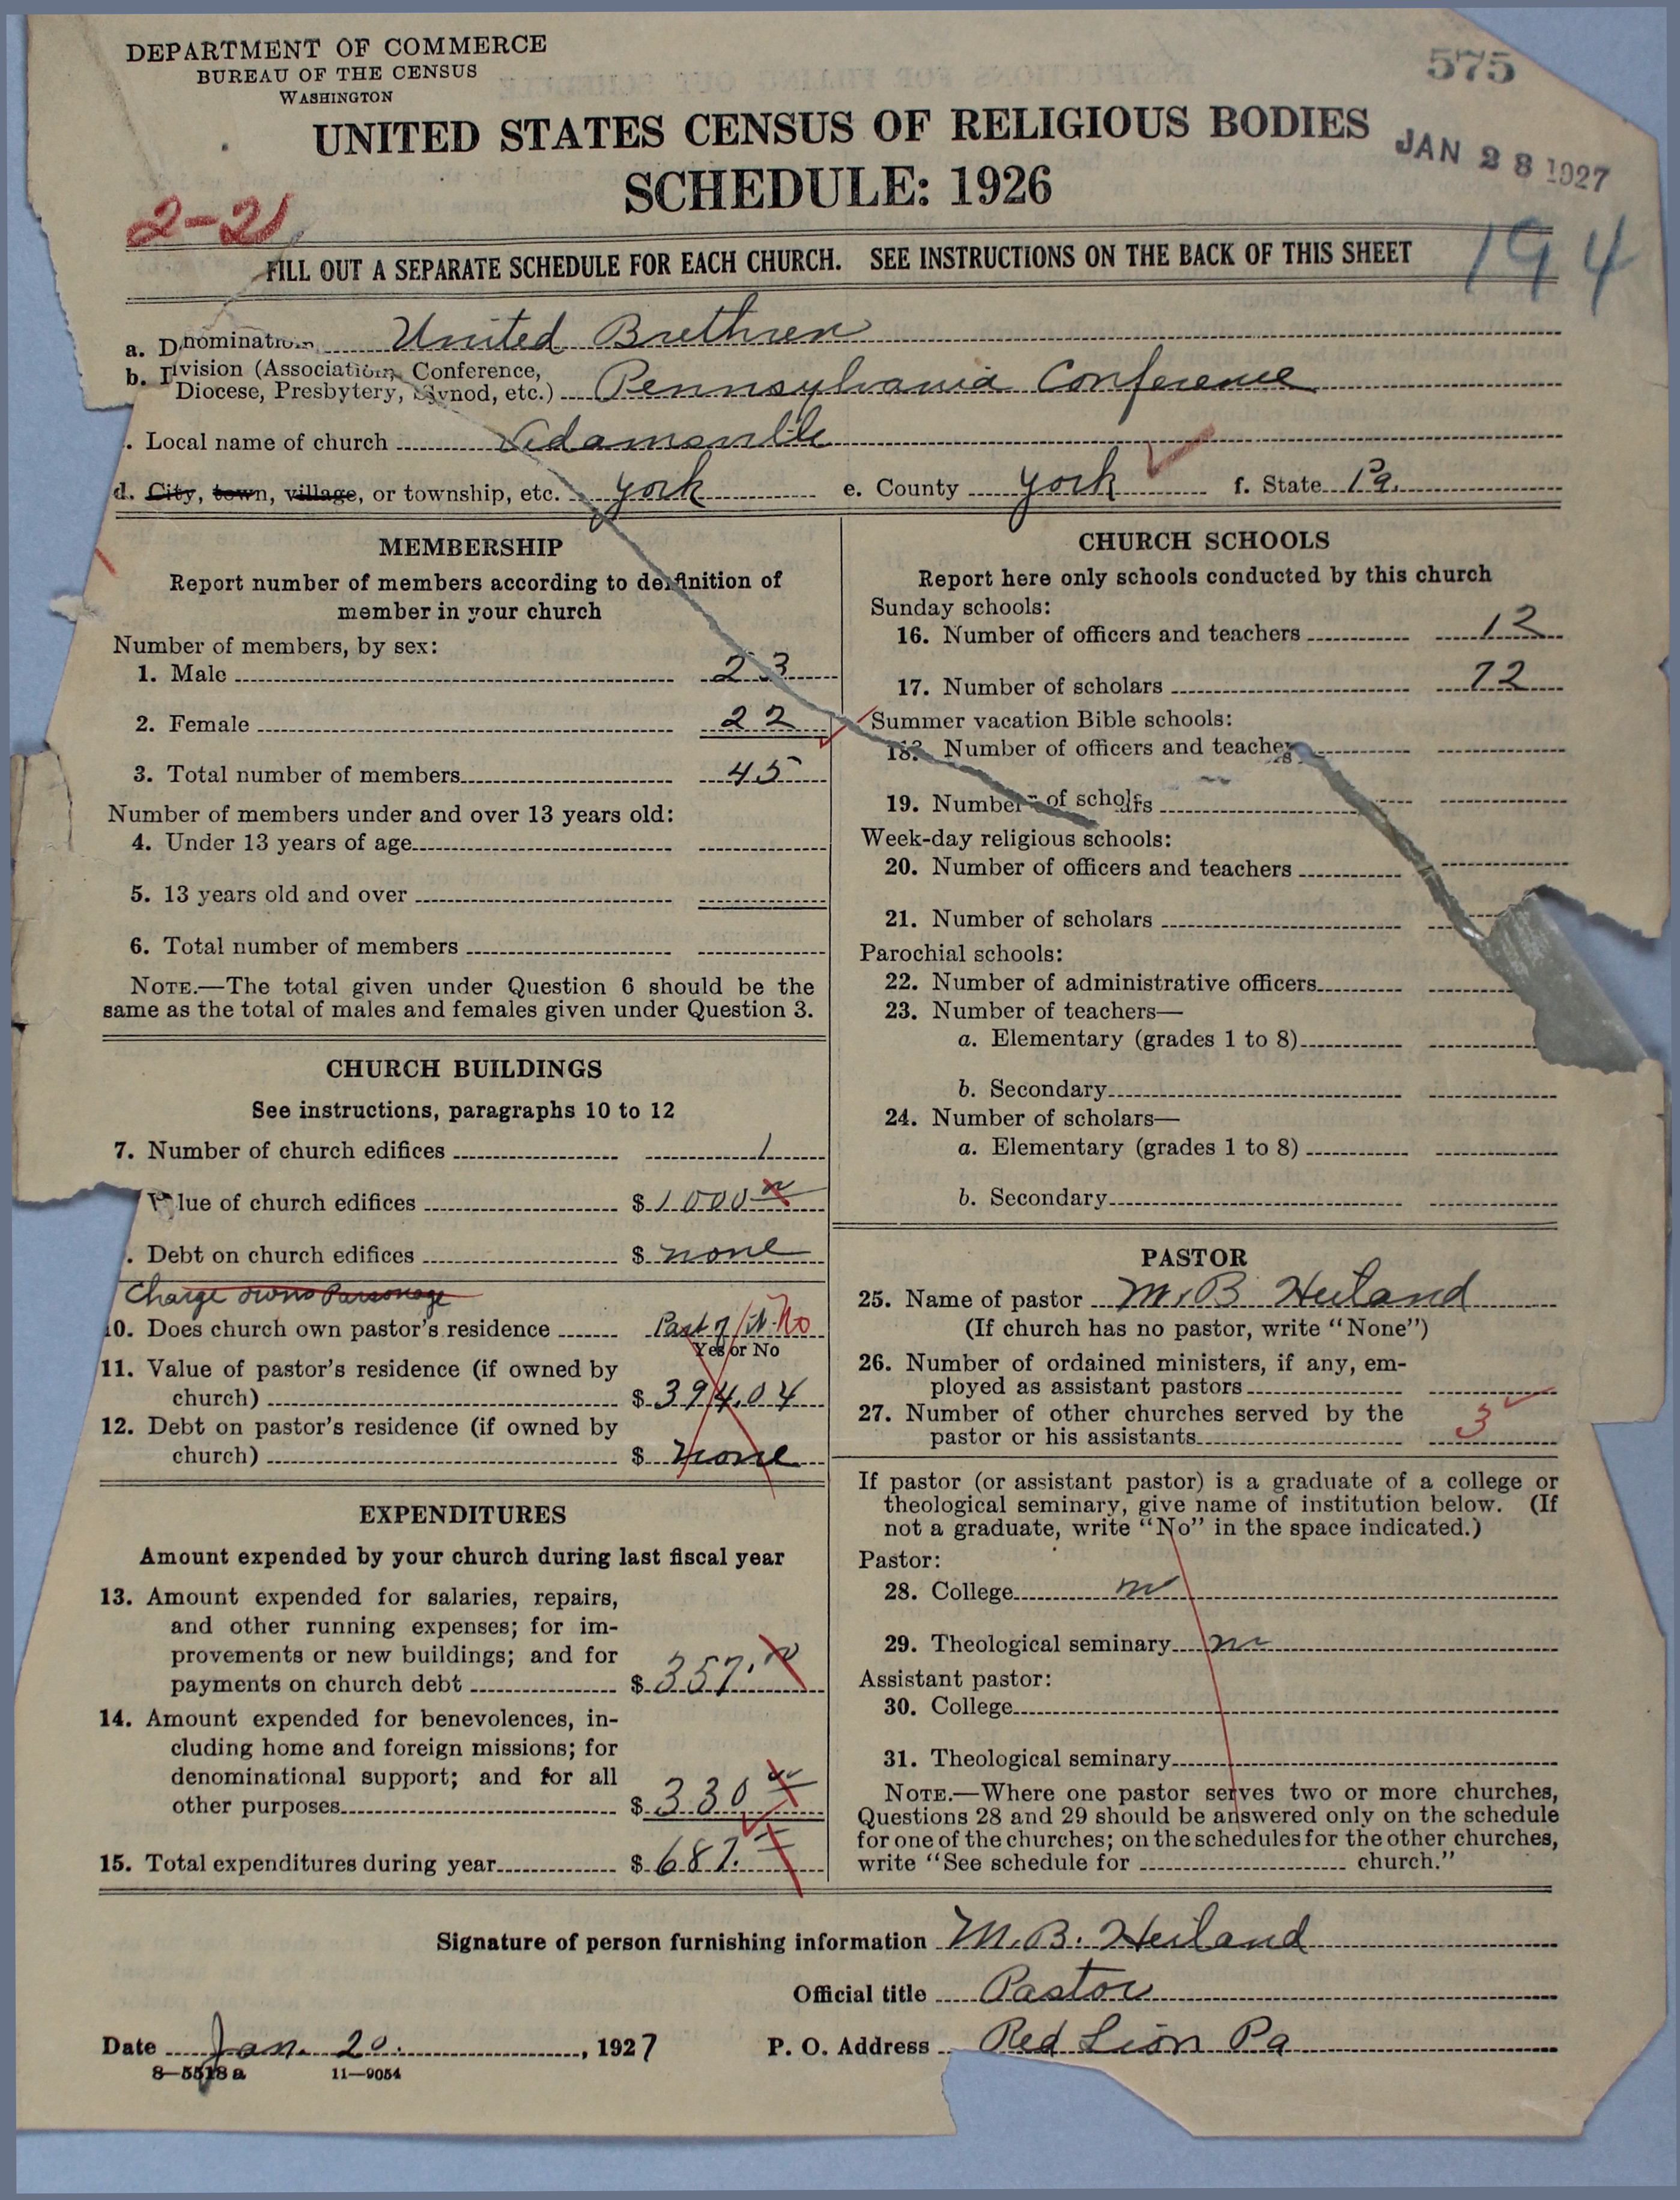 DEPARTMENT OF COMMERCE
BUREAU OF THE CENSUS
WASHINGTON
575
UNITED STATES CENSUS OF RELIGIOUS BODIES
JAN 28 1927
SCHEDULE: 1926
2-21
194
FILL OUT A SEPARATE SCHEDULE FOR EACH CHURCH. SEE INSTRUCTIONS ON THE BACK OF THIS SHEET
a. Denomination United Brethren
b. Division (Association, Conference,
Diocese, Presbytery, Synod, etc.) Pennsylvania Conference
. Local name of church Adamsville
d. City, town, village, or township, etc. York e. County York f. State Pa.
MEMBERSHIP
Report number of members according to definition of
member in your church
Number of members, by sex:
1. Male 23
2. Female 22
3. Total number of members 45
Number of members under and over 13 years old:
4. Under 13 years of age
5. 13 years old and over
6. Total number of members
NOTE.—The total given under Question 6 should be the
same as the total of males and females given under Question 3.
CHURCH BUILDINGS
See instructions, paragraphs 10 to 12
7. Number of church edifices 1
Value of church edifices $ 1000
. Debt on church edifices $ none
Charge owns Parsonage
10. Does church own pastor's residence Part of it No
Yes or No
11. Value of pastor's residence (if owned by
church) $ 394.04
12. Debt on pastor's residence (if owned by
church) $ none
EXPENDITURES
Amount expended by your church during last fiscal year
13. Amount expended for salaries, repairs,
and other running expenses; for im-
provements or new buildings; and for
payments on church debt $ 357.
14. Amount expended for benevolences, in-
cluding home and foreign missions; for
denominational support; and for all
other purposes $ 330
15. Total expenditures during year $ 687.
CHURCH SCHOOLS
Report here only schools conducted by this church
Sunday schools:
16. Number of officers and teachers 12
17. Number of scholars 72
Summer vacation Bible schools:
18. Number of officers and teachers
19. Number of scholars
Week-day religious schools:
20. Number of officers and teachers
21. Number of scholars
Parochial schools:
22. Number of administrative officers
23. Number of teachers—
a. Elementary (grades 1 to 8)
b. Secondary
24. Number of scholars—
a. Elementary (grades 1 to 8)
b. Secondary
PASTOR
25. Name of pastor M. B. Heiland
(If church has no pastor, write "None")
26. Number of ordained ministers, if any, em-
ployed as assistant pastors
27. Number of other churches served by the
pastor or his assistants 3
If pastor (or assistant pastor) is a graduate of a college or
theological seminary, give name of institution below. (If
not a graduate, write "No" in the space indicated.)
Pastor:
28. College no
29. Theological seminary no
Assistant pastor:
30. College
31. Theological seminary
NOTE.—Where one pastor serves two or more churches,
Questions 28 and 29 should be answered only on the schedule
for one of the churches; on the schedules for the other churches,
write "See schedule for church."
Signature of person furnishing information M. B. Heiland
Official title Pastor
Date Jan. 20. , 1927 P. O. Address Red Lion Pa
8—5518 a 11—9054